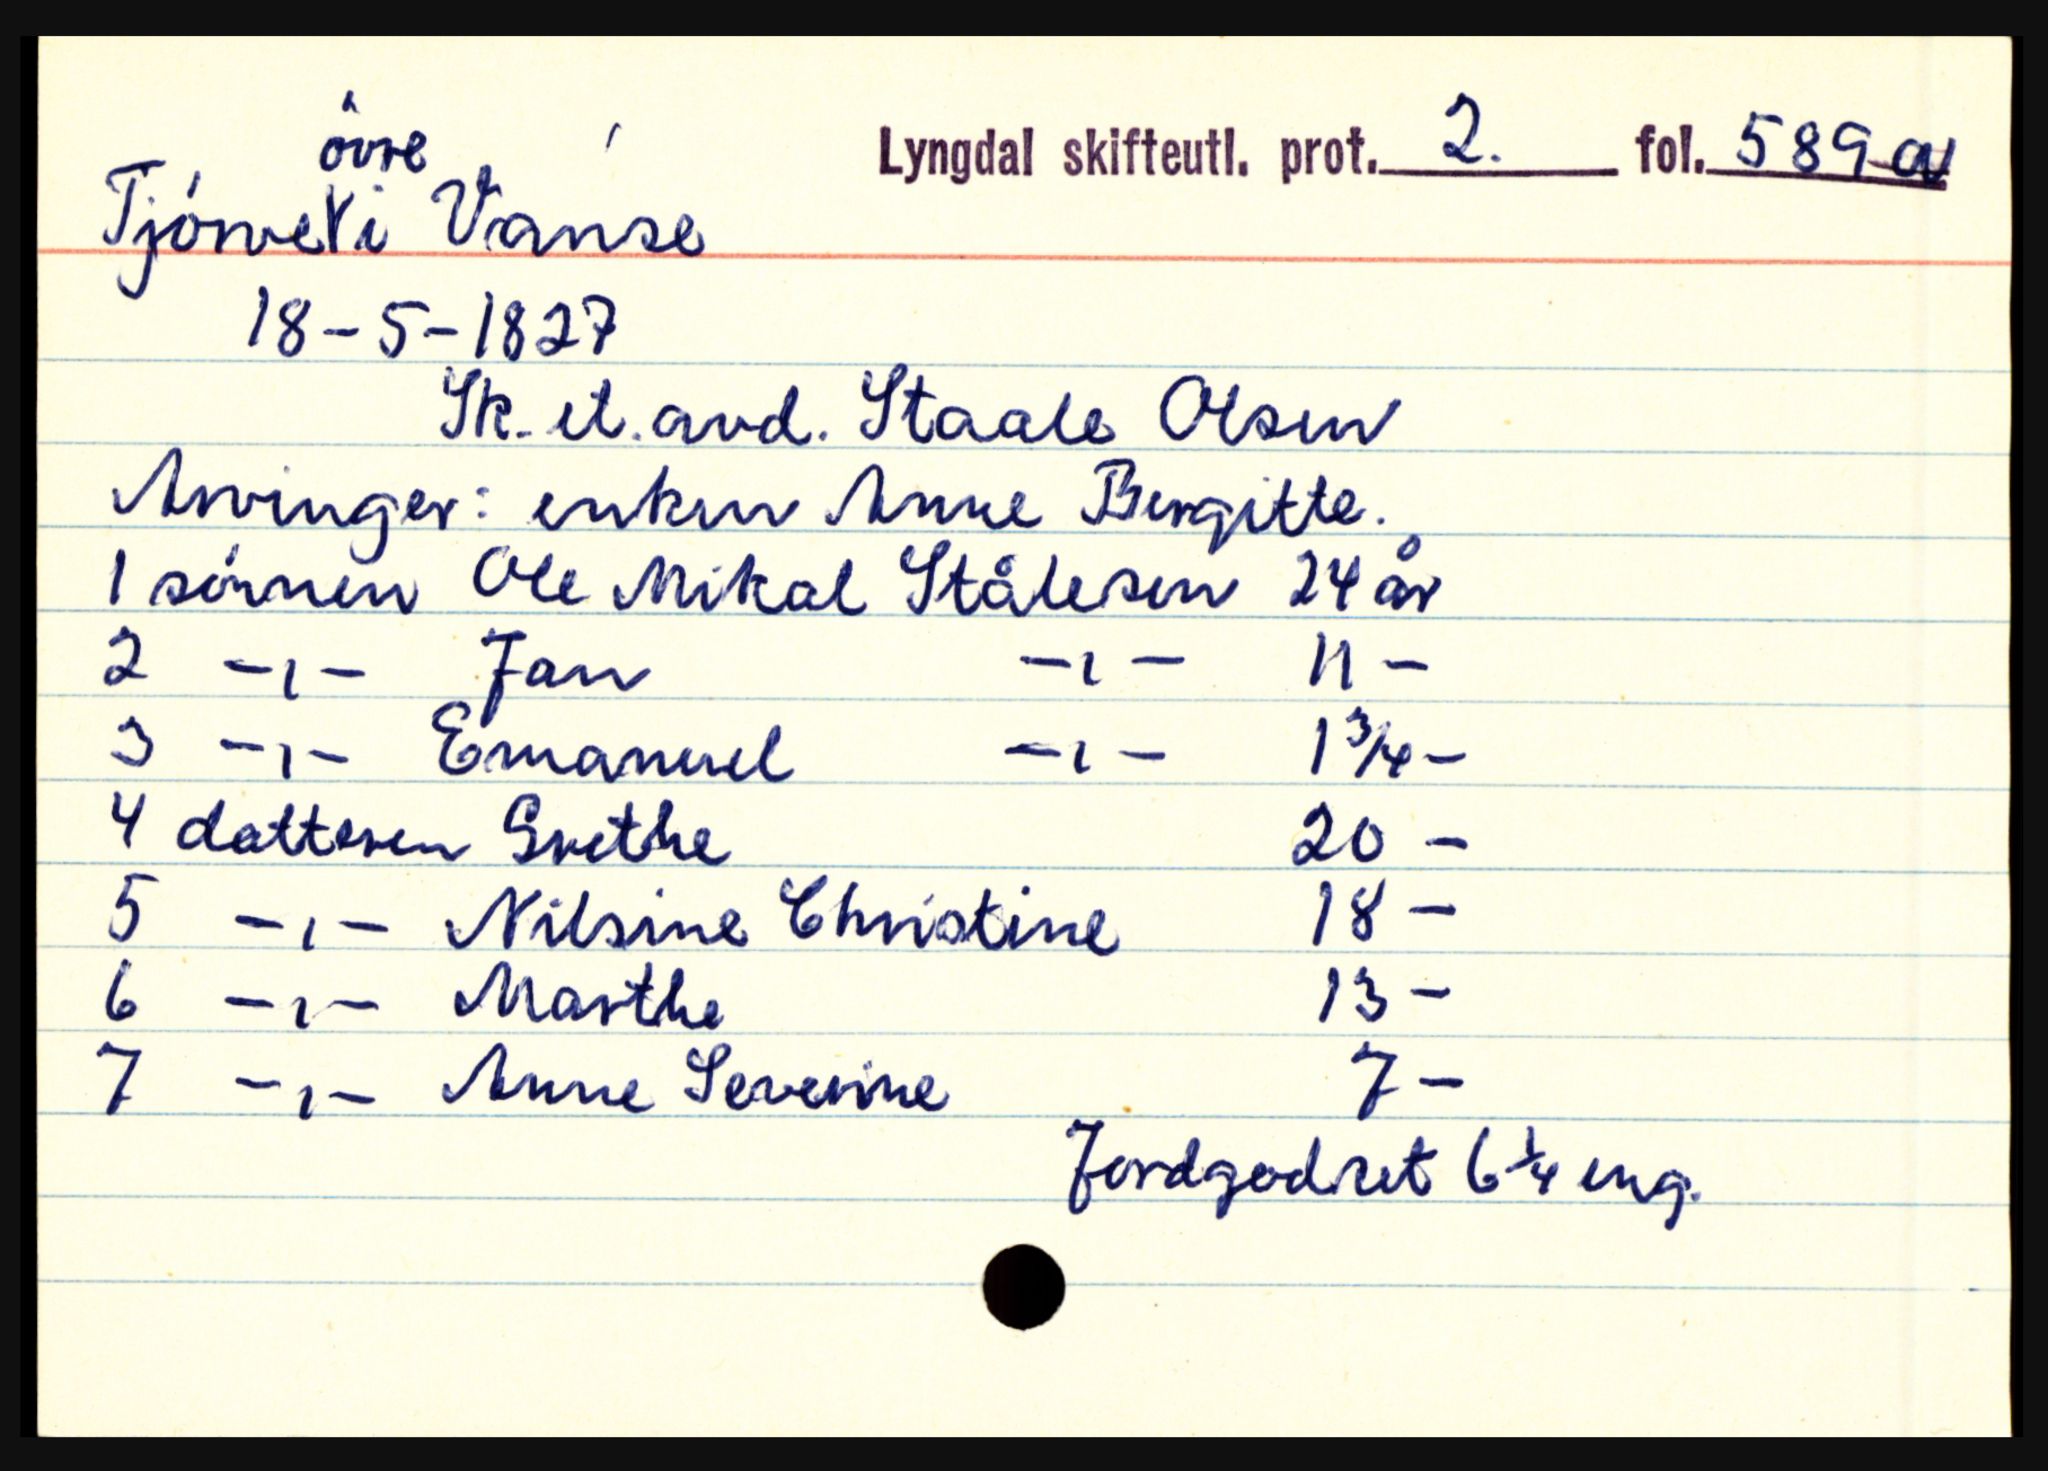 Lyngdal skifteutl. prot. 2. fol. 589a
øvre
Tjórve i Vanse
18-5-1827
Sk. et. avd. Staale Olsen
Arvinger: enken Anne Birgitte.
1 sónnen Ole Mikal Stålesen 24 år
2 -ı- Jan -ı- 11 -
3 -ı- Emanuel -ı- 1 3/4 -
4 datteren Grethe 20 -
5 -ı- Nilsine Christine 18 -
6 -ı- Marthe 13 -
7 -ı- Anne Severine 7 -
Jordgodset 6 1/4 eng.